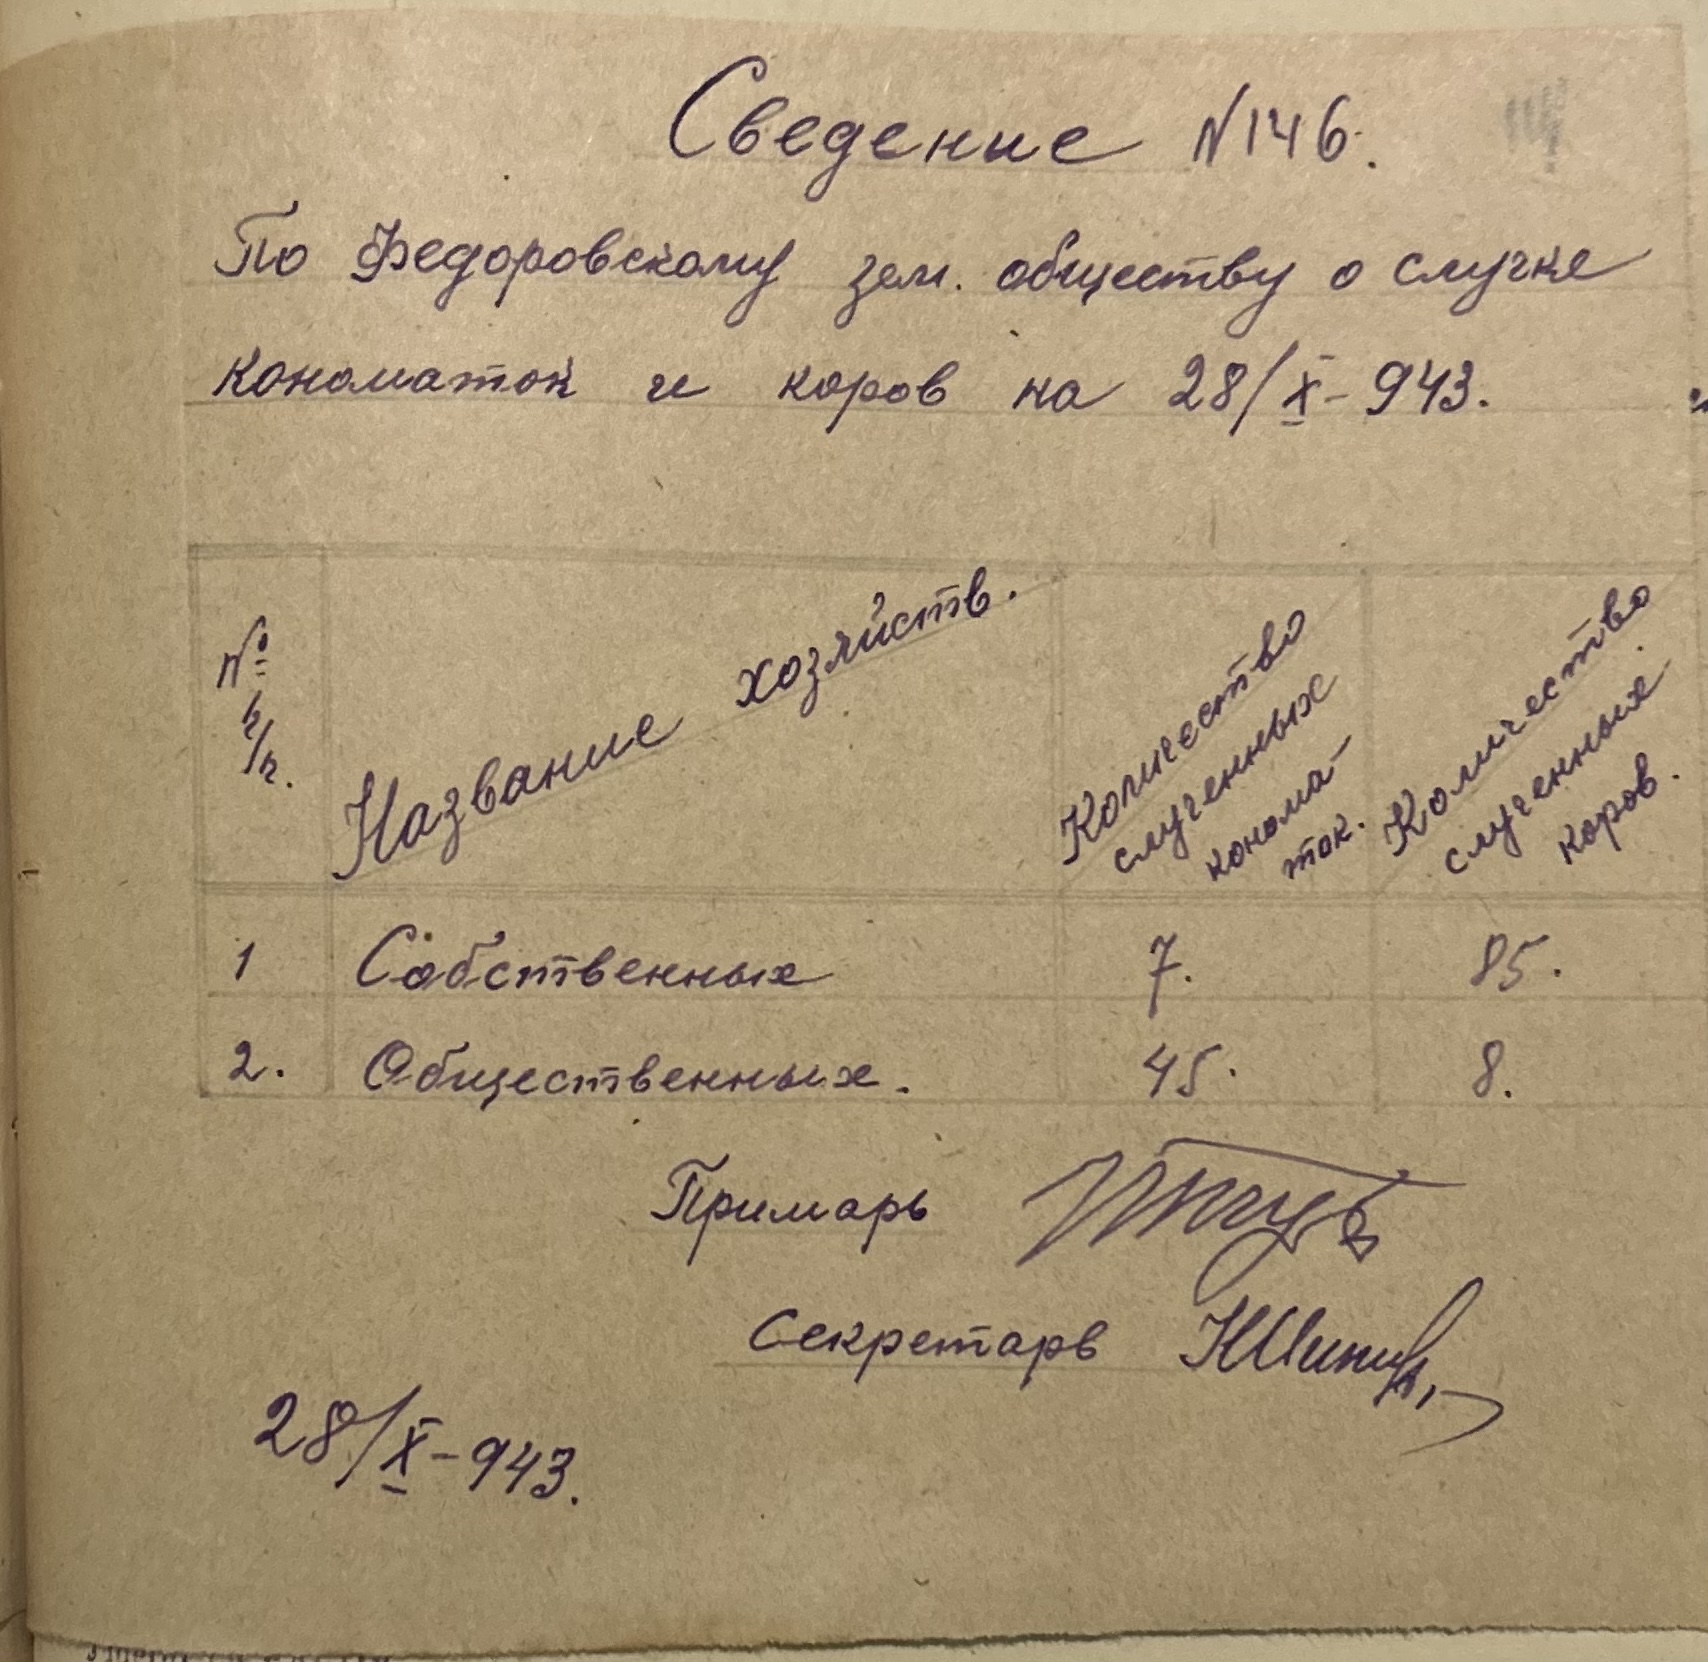 Сведение N146.
По Федоровскому зем. обществу о случке
кономаток и коров на 28/X-943.
№ п/п. Название хозяйств. Количество слученных конома- ток. Количество слученных коров.
1 Собственных 7. 85.
2. Общественных. 45. 8.
Примарь
Секретарь
28/X-943.